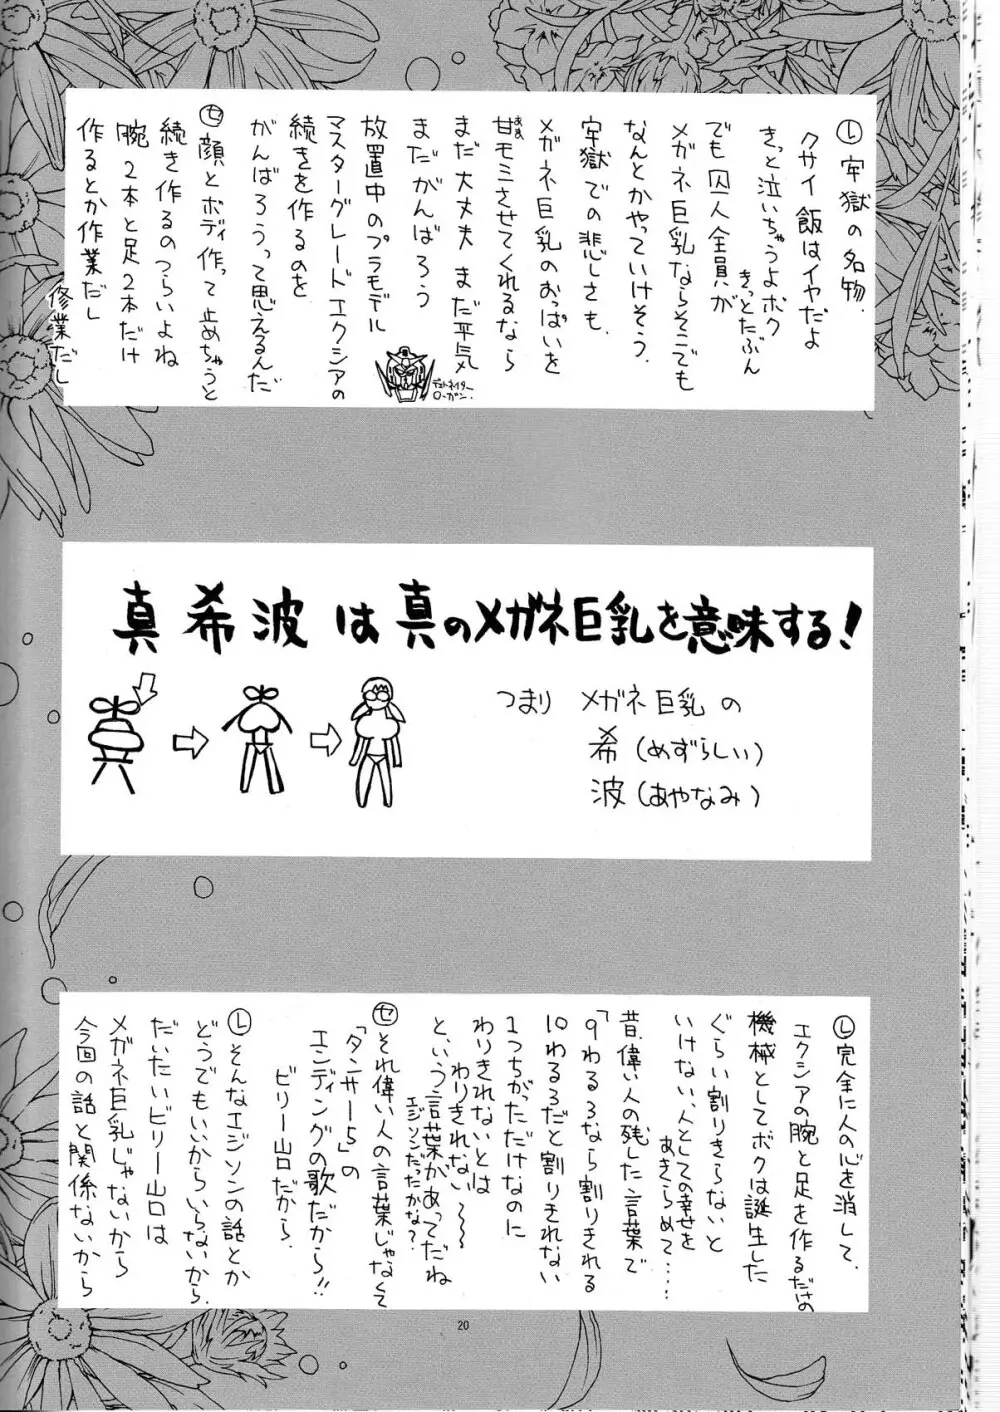 Ⓛ牢獄の名物
クサイ飯はイヤだよ
きっと泣いちゃうよボク
きっとたぶん
でも囚人全員が
メガネ巨乳ならそこでも
なんとかやっていけそう。
牢獄での悲しさも、
メガネ巨乳のおっぱいを
甘モミさせてくれるなら
あま
まだ大丈夫まだ平気
まだがんばろう
放置中のプラモデル
マスターグレードエクシアの
続きを作るのを
がんばろうって思えるんだ
デトネイター
ローガン.
㋝顔とボディ作って止めちゃうと
続き作るのつらいよね
腕2本と足2本だけ
作るとか作業だし
修業だし
真希波は真のメガネ巨乳を意味する!
つまり メガネ巨乳の
希(めずらしい)
波(あやなみ)
Ⓛ完全に人の心を消して、
エクシアの腕と足を作るだけの
機械としてボクは誕生した
ぐらい割りきらないと
いけない、人としての幸せを
あきらめて……
昔、偉い人の残した言葉で
「9わる3なら割りきれる
10わる3だと割りきれない
1つちがっただけなのに
わりきれないとは
わりきれない〜〜
と、いう言葉があってだね
エジソンだったかな?
㋝それ偉い人の言葉じゃなくて
「タンサー5」の
エンディングの歌だから!!
ビリー山口だから.
Ⓛそんなエジソンの話とか
どうでもいいからいらないから.
だいたいビリー山口は
メガネ巨乳じゃないから
今回の話と関係ないから
20